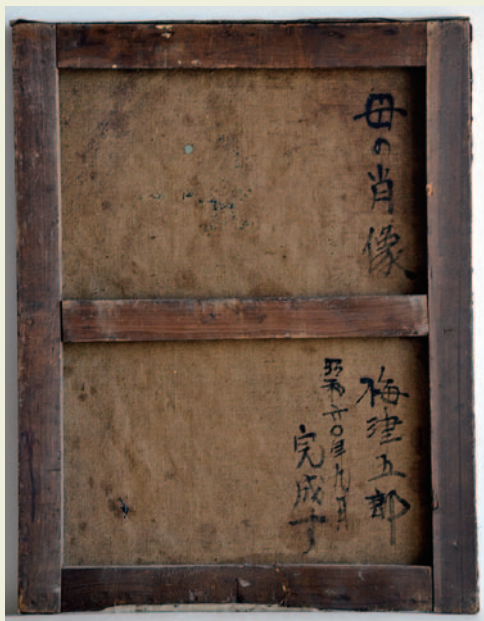 母の肖像
梅津五郎
昭和六〇年九月
完成す